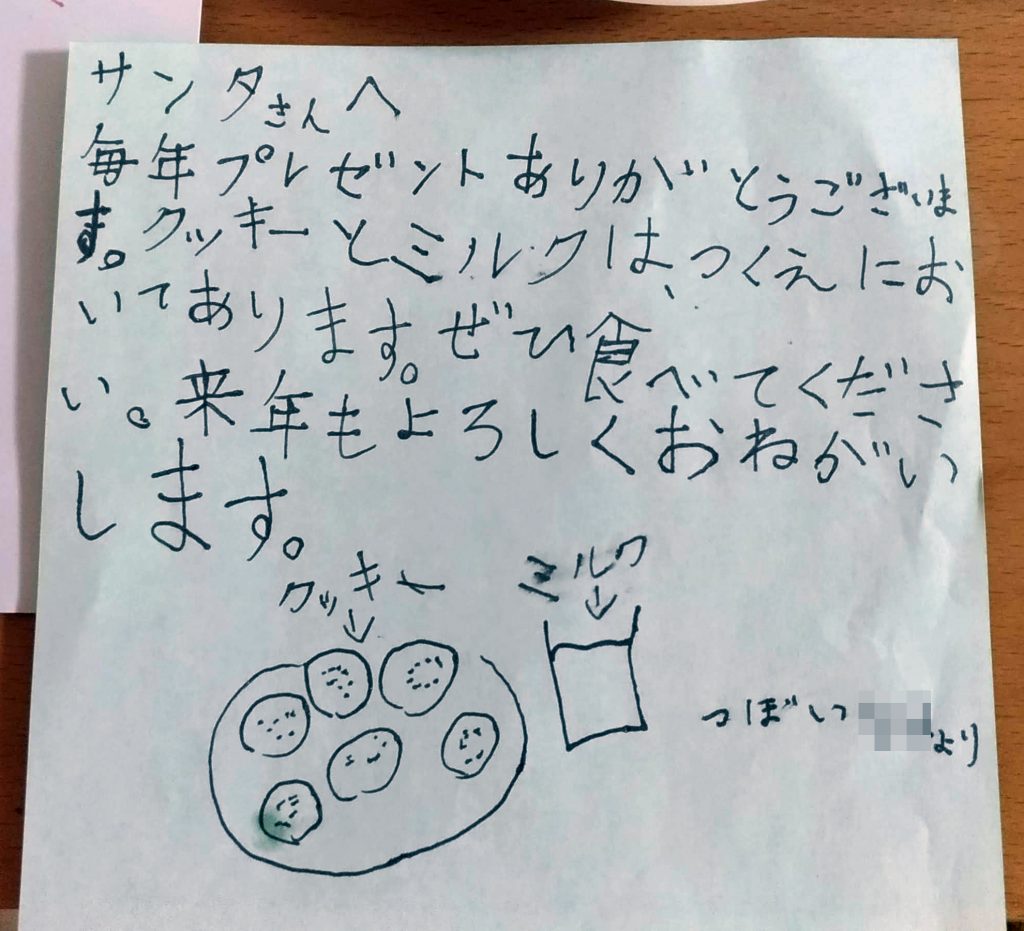 サンタさんへ
毎年プレゼントありがとうございま
す。クッキーとミルクは、つくえにお
いてあります。ぜひ食べてくださ
い。来年もよろしくおねがい
します。
クッキー
ミルク
つぼい
より